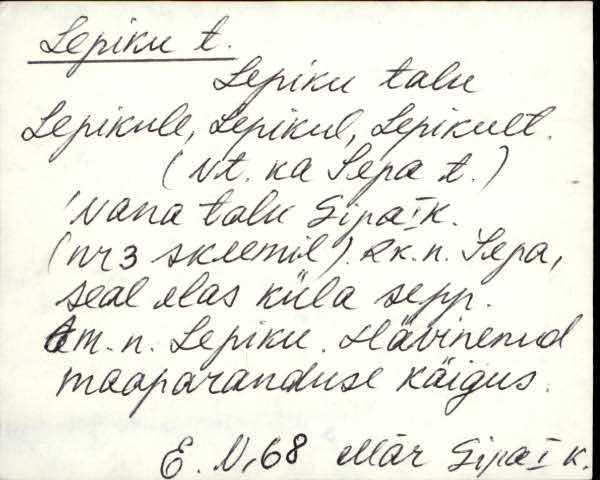 Lepiku t.
Lepiku talu
Lepikule, Lepikul, Lepikult.
(Vt. ka Sepa t.)
Vana talu Sipa I k.
(nr 3 skeemil). Rk. n. Sepa,
seal elas küla sepp.
Am. n. Lepiku. Hävinenud
maaparanduse käigus.
E. V, 68 Mär Sipa I k.